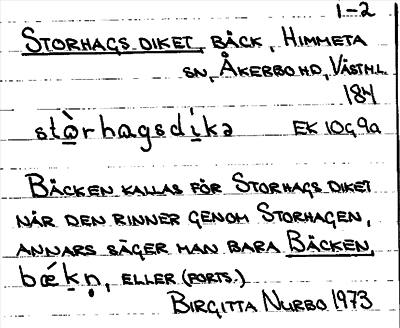 1-2
STORHAGS DIKET, BÄCK, HIMMETA
SN, ÅKERBO HD, VÄSTML.
184
stòrhagsdikə EK 10g,9a
BÄCKEN KALLAS FÖR STORHAGS DIKET
NÄR DEN RINNER GENOM STORHAGEN,
ANNARS SÄGER MAN BARA BÄCKEN,
bǽkn̥, ELLER (FORTS.)
BIRGITTA NURBO 1973